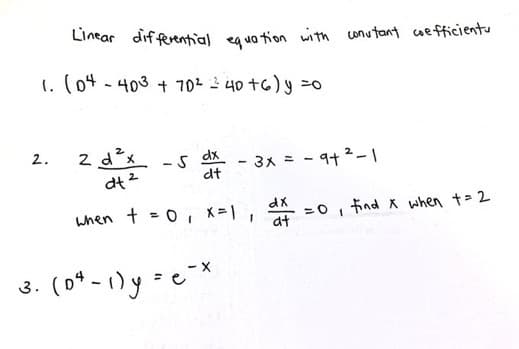 Linear differential equation with constant coefficients
1. (D⁴ - 4D³ + 7D² - 4D + 6) y = 0
2. 2 d²x/dt² - 5 dx/dt - 3x = - 9t² - 1
when t = 0, x = 1, dx/dt = 0, find x when t = 2
3. (D⁴ - 1) y = e⁻ˣ